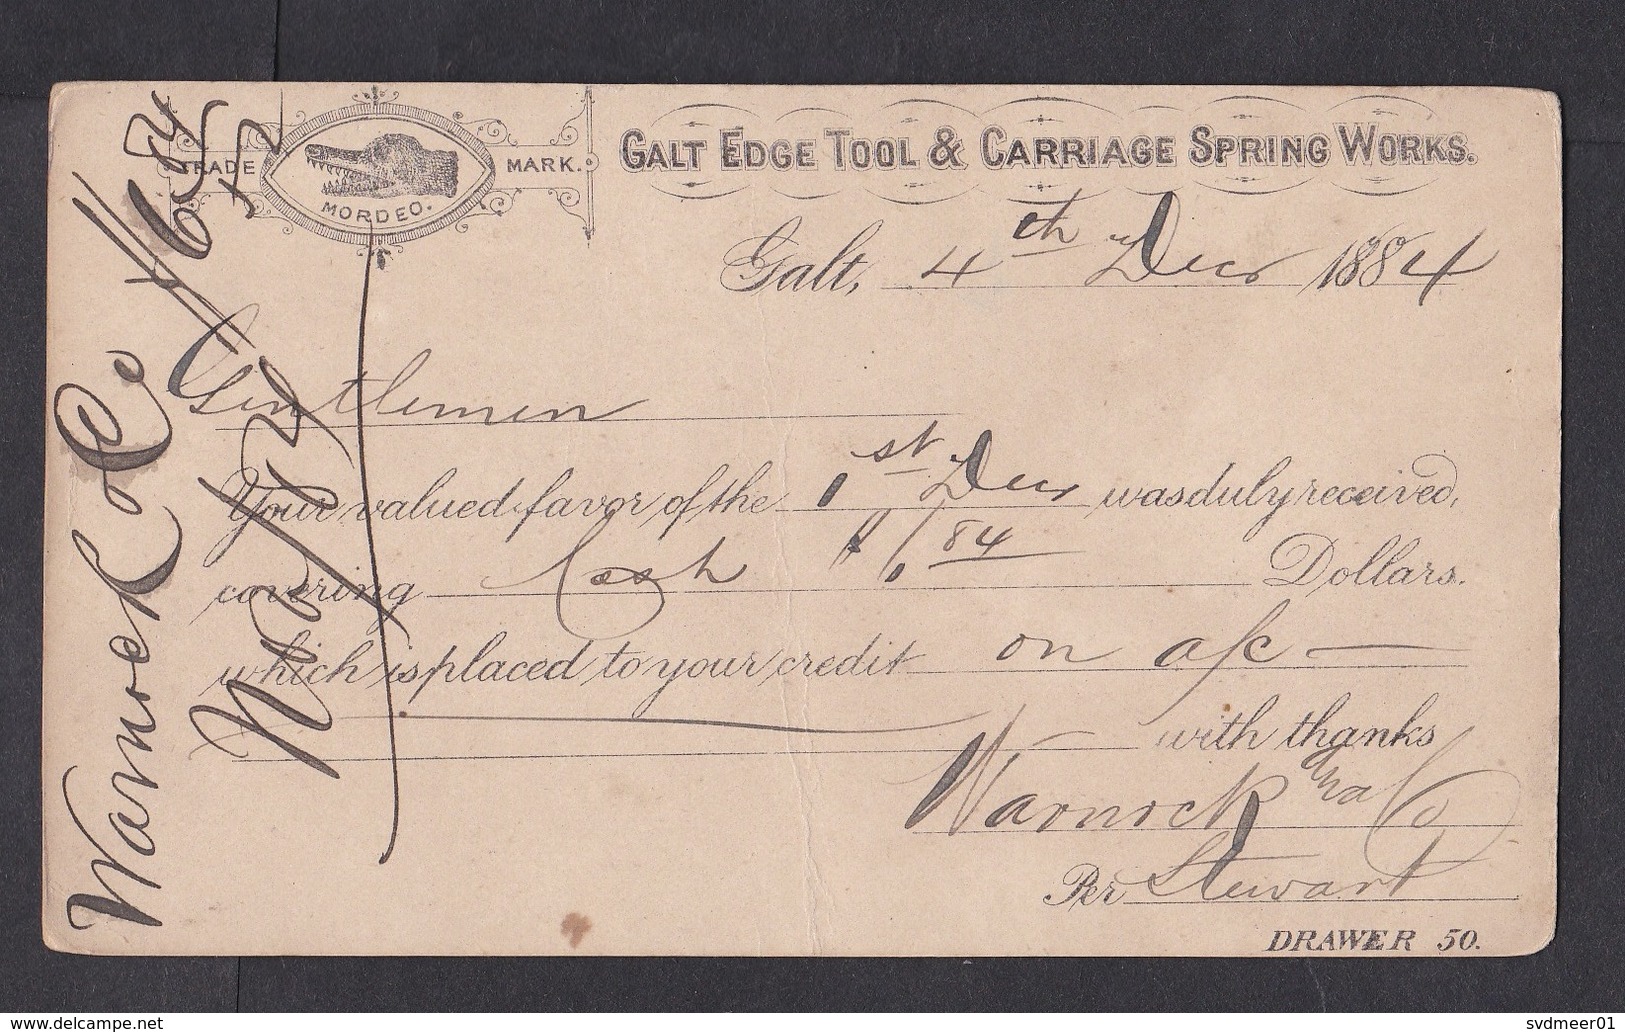 TRADE MARK.
MORDEO.
GALT EDGE TOOL & CARRIAGE SPRING WORKS.
Galt, 4th Dec 1884
Gentlemen
Your valued favor of the 1st Dec was duly received,
covering Cash $1.84 Dollars.
which is placed to your credit on a/c —
with thanks
Warnock & Co
Per Stewart
DRAWER 50.
Warnock & Co.
svdmeer01